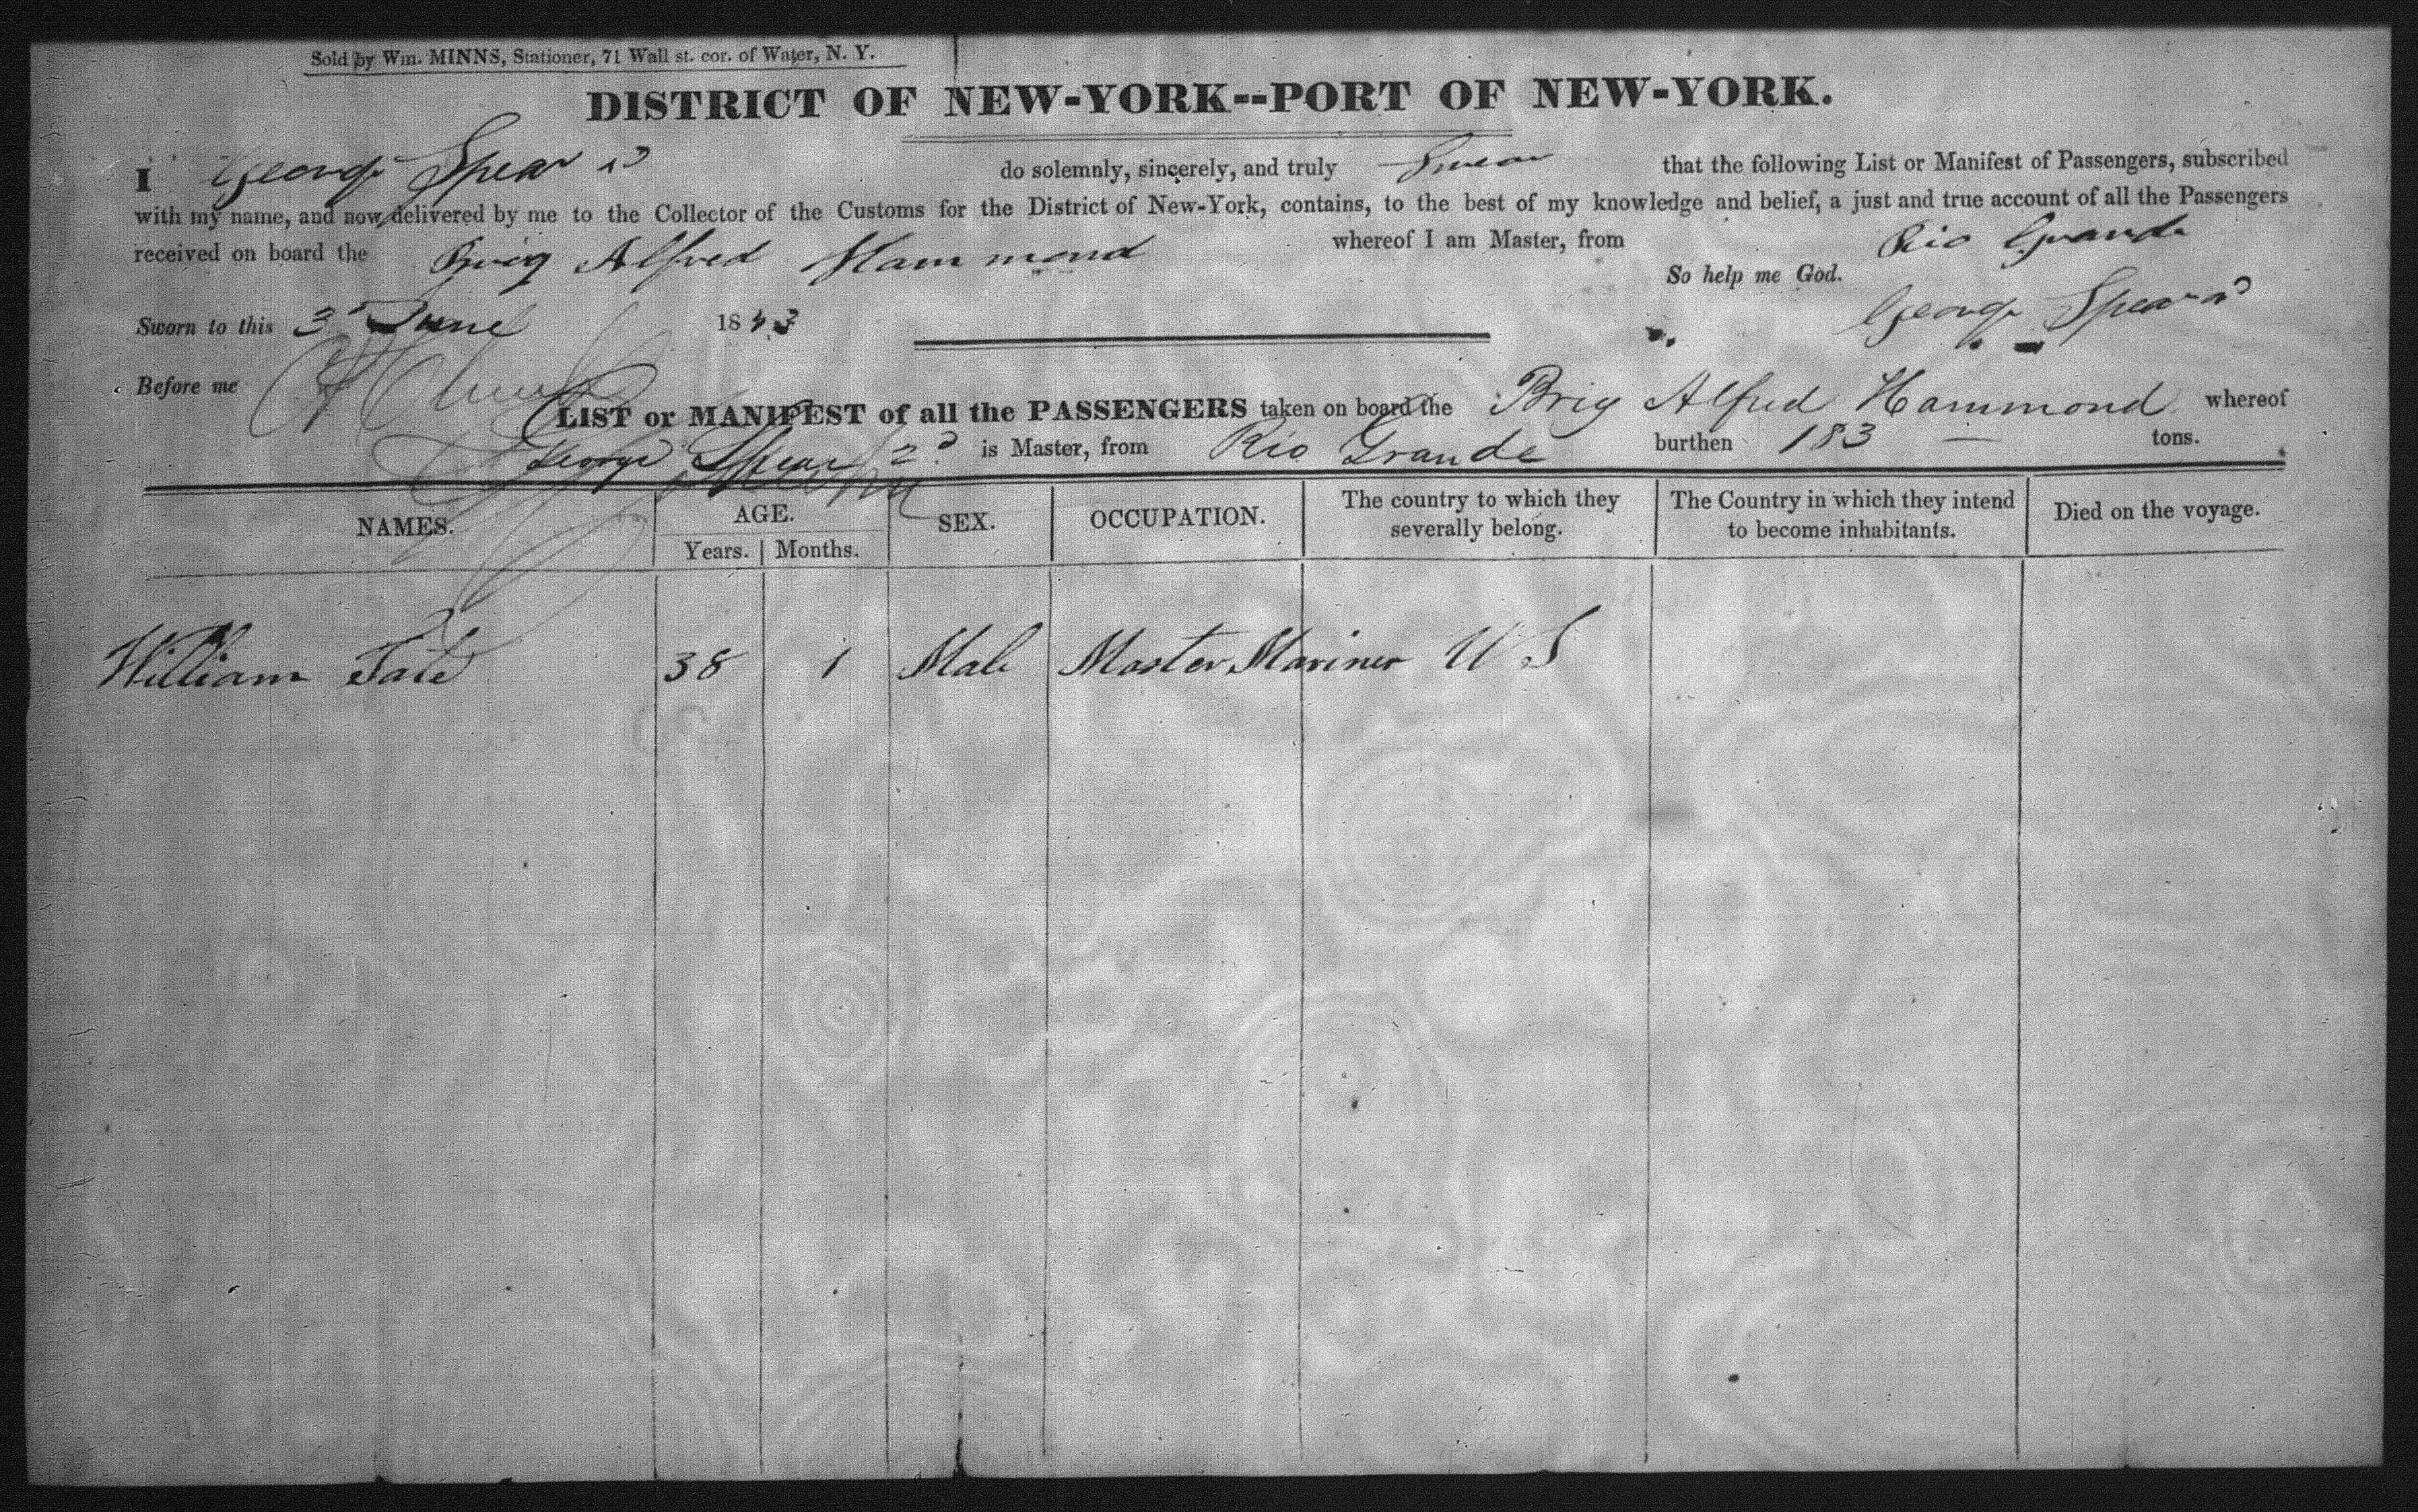 Sold by Wm. MINNS, Stationer, 71 Wall st. cor. of Water, N. Y.
DISTRICT OF NEW-YORK--PORT OF NEW-YORK.
I George Spear 2d do solemnly, sincerely, and truly Swear that the following List or Manifest of Passengers, subscribed
with my name, and now delivered by me to the Collector of the Customs for the District of New-York, contains, to the best of my knowledge and belief, a just and true account of all the Passengers
received on board the Brig Alfred Hammond whereof I am Master, from Rio Grande
So help me God.
Sworn to this 3d June 1843 George Spear 2d
Before me
LIST or MANIFEST of all the PASSENGERS taken on board the Brig Alfred Hammond whereof
George Spear 2d is Master, from Rio Grande burthen 183 — tons.
NAMES. AGE. SEX. OCCUPATION. The country to which they severally belong. The Country in which they intend to become inhabitants. Died on the voyage.
Years. Months.
William 38 1 Male Master Mariner U S